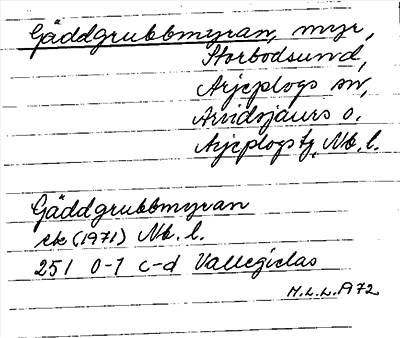 Gäddgrubbmyran, myr,
Storbodsund,
Arjeplogs sn,
Arvidsjaurs o.
Arjeplogs tg, Nb. l.
Gäddgrubbmyran
ek (1971) Nb. l.
251 0-1 c-d Vallegielas
H.L.L. A72